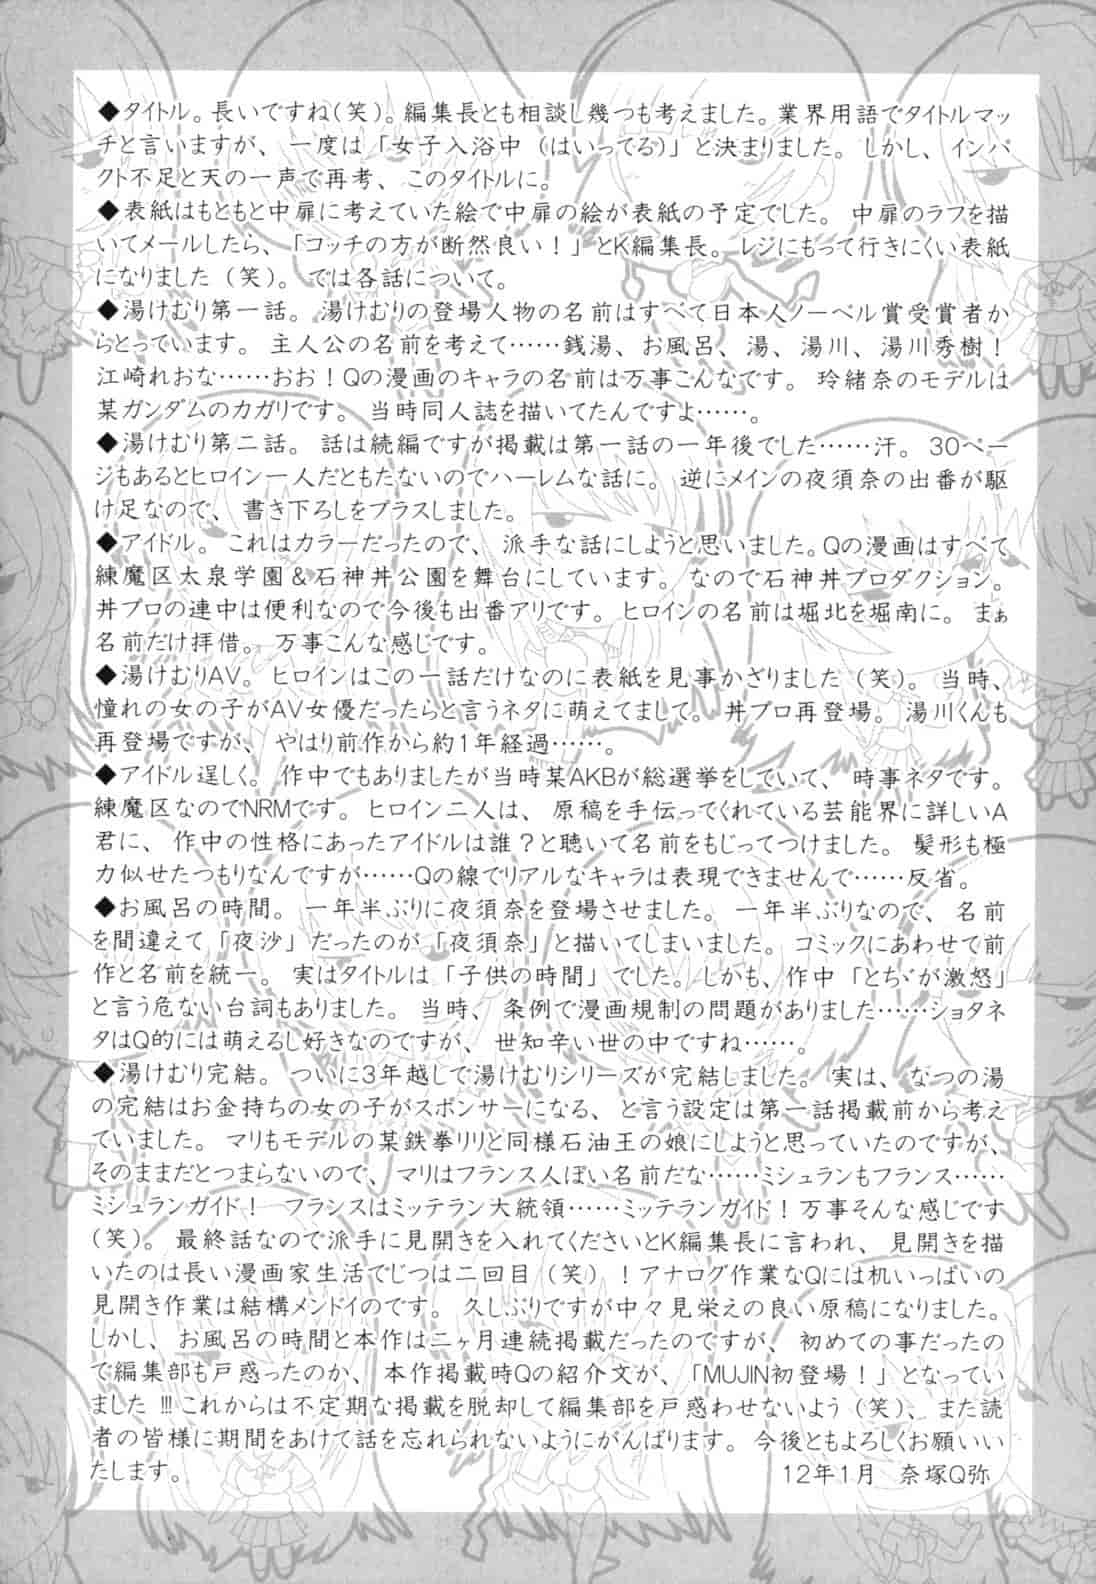 ◆タイトル。長いですね(笑)。編集長とも相談し幾つも考えました。業界用語でタイトルマッ
チと言いますが、一度は「女子入浴中（はいってる）」と決まりました。しかし、インパ
クト不足と天の一声で再考、このタイトルに。
◆表紙はもともと中扉に考えていた絵で中扉の絵が表紙の予定でした。中扉のラフを描
いてメールしたら、「コッチの方が断然良い！」とK編集長。レジにもって行きにくい表紙
になりました（笑）。では各話について。
◆湯けむり第一話。湯けむりの登場人物の名前はすべて日本人ノーベル賞受賞者か
らとっています。主人公の名前を考えて……銭湯、お風呂、湯、湯川、湯川秀樹！
江崎れおな……おお！Qの漫画のキャラの名前は万事こんなです。玲緒奈のモデルは
某ガンダムのカガリです。当時同人誌を描いてたんですよ……。
◆湯けむり第二話。話は続編ですが掲載は第一話の一年後でした……汗。30ペー
ジもあるとヒロイン一人だともたないのでハーレムな話に。逆にメインの夜須奈の出番が駆
け足なので、書き下ろしをプラスしました。
◆アイドル。これはカラーだったので、派手な話にしようと思いました。Qの漫画はすべて
練魔区太泉学園＆石神丼公園を舞台にしています。なので石神丼プロダクション。
丼プロの連中は便利なので今後も出番アリです。ヒロインの名前は堀北を堀南に。まぁ
名前だけ拝借。万事こんな感じです。
◆湯けむりAV。ヒロインはこの一話だけなのに表紙を見事かざりました（笑）。当時、
憧れの女の子がAV女優だったらと言うネタに萌えてまして。丼プロ再登場。湯川くんも
再登場ですが、やはり前作から約1年経過……。
◆アイドル逞しく。作中でもありましたが当時某AKBが総選挙をしていて、時事ネタです。
練魔区なのでNRMです。ヒロイン二人は、原稿を手伝ってくれている芸能界に詳しいA
君に、作中の性格にあったアイドルは誰？と聴いて名前をもじってつけました。髪形も極
力似せたつもりなんですが……Qの線でリアルなキャラは表現できませんで……反省。
◆お風呂の時間。一年半ぶりに夜須奈を登場させました。一年半ぶりなので、名前
を間違えて「夜沙」だったのが「夜須奈」と描いてしまいました。コミックにあわせて前
作と名前を統一。実はタイトルは、「子供の時間」でした。しかも、作中「とちゞが激怒」
と言う危ない台詞もありました。当時、条例で漫画規制の問題がありました……ショタネ
タはQ的には萌えるし好きなのですが、世知辛い世の中ですね……。
◆湯けむり完結。ついに3年越しで湯けむりシリーズが完結しました。実は、なつの湯
の完結はお金持ちの女の子がスポンサーになる、と言う設定は第一話掲載前から考え
ていました。マリもモデルの某鉄拳リリと同様石油王の娘にしようと思っていたのですが、
そのままだとつまらないので、マリはフランス人ぽい名前だな……ミシュランもフランス……
ミシュランガイド！　フランスはミッテラン大統領……ミッテランガイド！万事そんな感じです
（笑）。最終話なので派手に見開きを入れてくださいとK編集長に言われ、見開きを描
いたのは長い漫画家生活でじつは二回目（笑）！アナログ作業なQには机いっぱいの
見開き作業は結構メンドイのです。久しぶりですが中々見栄えの良い原稿になりました。
しかし、お風呂の時間と本作は二ヶ月連続掲載だったのですが、初めての事だったの
で編集部も戸惑ったのか、本作掲載時Qの紹介文が、「MUJIN初登場！」となってい
ました!!!これからは不定期な掲載を脱却して編集部を戸惑わせないよう（笑）、また読
者の皆様に期間をあけて話を忘れられないようにがんばります。今後ともよろしくお願いい
たします。　12年1月　奈塚Q弥